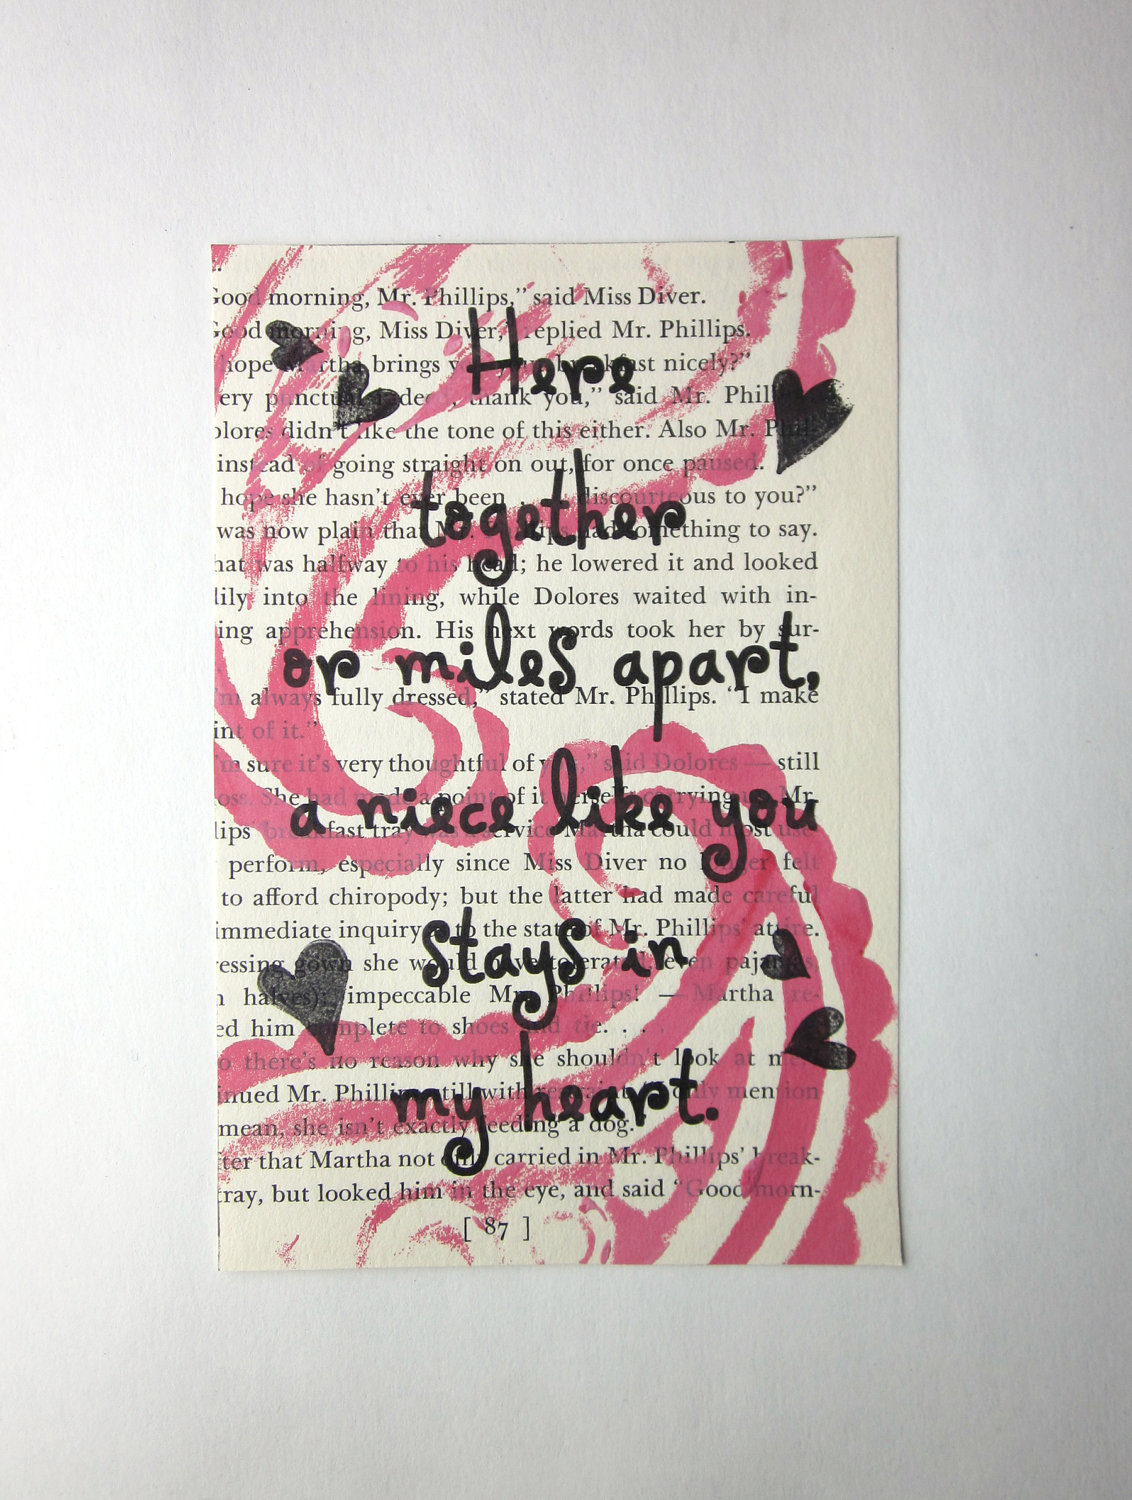 Good morning, Mr. Phillips,” said Miss Diver.
Good morning, Miss Diver,” replied Mr. Phillips.
Here
hope Martha brings you your breakfast nicely?”
ery punctual indeed, thank you,” said Mr. Phil-
olores didn’t like the tone of this either. Also Mr. Phil-
instead of going straight on out, for once paused.
hope she hasn’t ever been . . . discourteous to you?”
together
was now plain that Mr. Phillips had something to say.
hat was halfway to his head; he lowered it and looked
dily into the lining, while Dolores waited with in-
ing apprehension. His next words took her by sur-
or miles apart,
’m always fully dressed,” stated Mr. Phillips. “I make
int of it.”
’m sure it’s very thoughtful of you,” said Dolores — still
oss. She had made a point of it herself, carrying up Mr.
a niece like you
lips’ breakfast tray was a service Martha could most use-
perform, especially since Miss Diver no longer felt
to afford chiropody; but the latter had made careful
immediate inquiry as to the state of Mr. Phillips’ attire.
stays in
ressing gown she would have tolerated, even pajamas,
n halves); impeccable Mr. Phillips! — Martha re-
ed him complete to shoes and tie. . . .
o there’s no reason why she shouldn’t look at me,”
inued Mr. Phillips, still with restraint. “I only mention
my heart.
mean, she isn’t exactly feeding a dog.”
ter that Martha not only carried in Mr. Phillips’ break-
tray, but looked him in the eye, and said “Good morn-
[ 87 ]